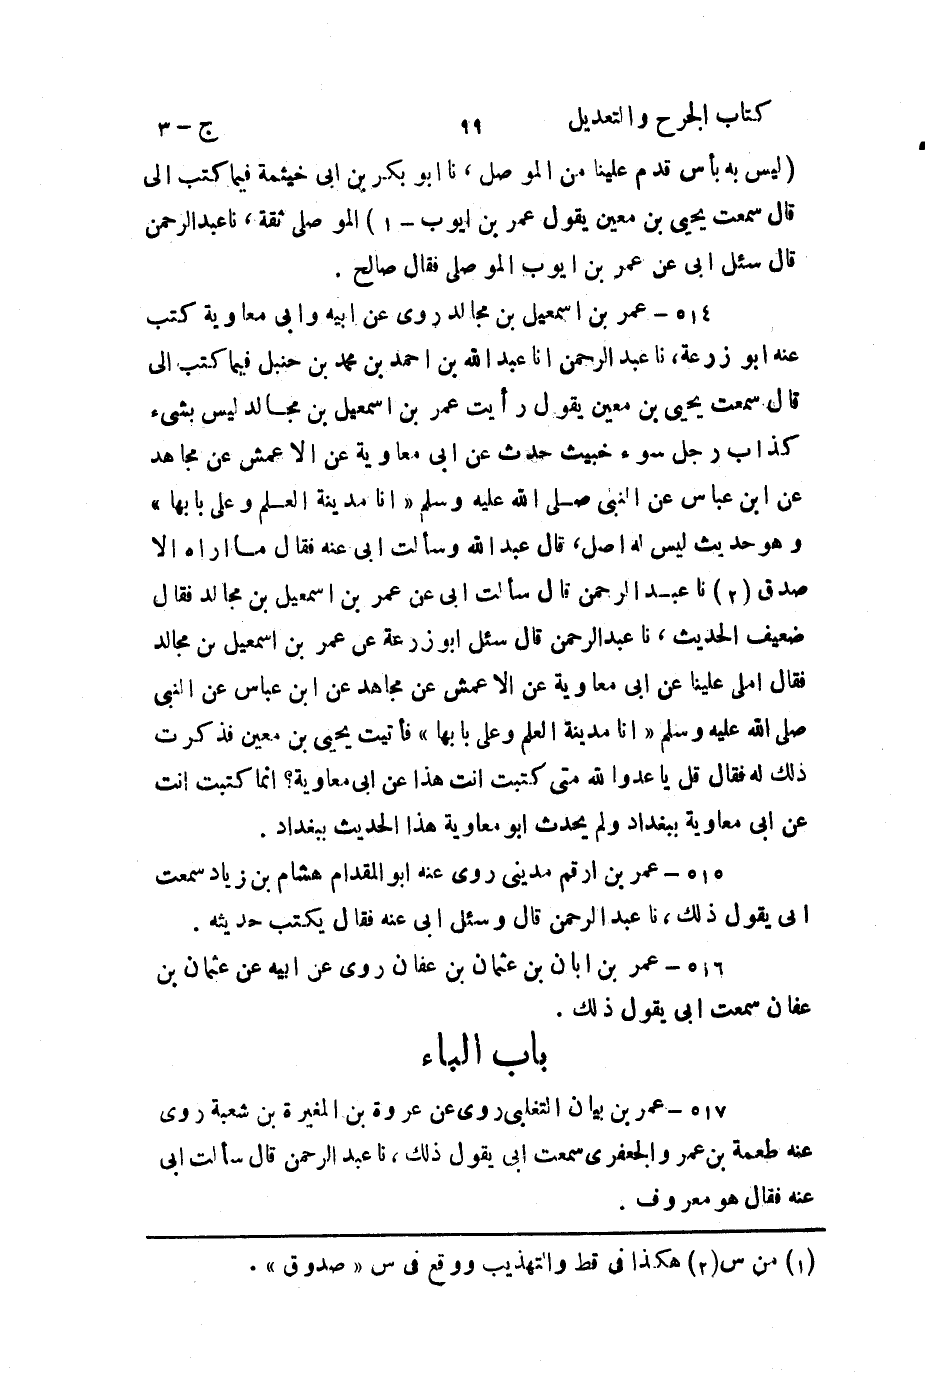 كتاب الجرح والتعديل ٩٩ ج - ٣
(ليس به بأس قدم علينا من الموصل ، نا ابو بكر بن ابى خيثمة فيما كتب الى
قال سمعت يحيى بن معين يقول عمر بن ايوب - ١ ) الموصلى ثقة ، نا عبدالرحمن
قال سئل ابى عن عمر بن ايوب الموصلى فقال صالح .
٥١٤ - عمر بن اسمعيل بن مجالد روى عن ابيه وابى معاوية كتب
عنه ابو زرعة، نا عبد الرحمن انا عبد الله بن احمد بن محمد بن حنبل فيما كتب الى
قال سمعت يحيى بن معين يقول رأيت عمر بن اسمعيل بن مجالد ليس بشىء
كذاب رجل سوء خبيث حدث عن ابى معاوية عن الاعمش عن مجاهد
عن ابن عباس عن النبى صلى الله عليه وسلم « انا مدينة العلم وعلى بابها »
وهو حديث ليس له اصل، قال عبد الله وسألت ابى عنه فقال ما اراه الا
صدق (٢) نا عبد الرحمن قال سألت ابى عن عمر بن اسمعيل بن مجالد فقال
ضعيف الحديث ، نا عبدالرحمن قال سئل ابو زرعة عن عمر بن اسمعيل بن مجالد
فقال املى علينا عن ابى معاوية عن الاعمش عن مجاهد عن ابن عباس عن النبى
صلى الله عليه وسلم « انا مدينة العلم وعلى بابها » فأتيت يحيى بن معين فذكرت
ذلك له فقال قل يا عدوا لله متى كتبت انت هذا عن ابى معاوية؟ انما كتبت انت
عن ابى معاوية ببغداد ولم يحدث ابو معاوية هذا الحديث ببغداد .
٥١٥ - عمر بن ارقم مدينى روى عنه ابو المقدام هشام بن زياد سمعت
ابى يقول ذلك ، نا عبد الرحمن قال وسئل ابى عنه فقال يكتب حديثه .
٥١٦ - عمر بن ابان بن عثمان بن عفان روى عن ابيه عن عثمان بن
عفان سمعت ابى يقول ذلك .
باب الباء
٥١٧ - عمر بن بيان التغلبى روى عن عروة بن المغيرة بن شعبة روى
عنه طعمة بن عمرو الجعفرى سمعت ابى يقول ذلك ، نا عبد الرحمن قال سألت ابى
عنه فقال هو معروف .
(١) من س (٢) هكذا فى قط والتهذيب ووقع فى س « صدوق » .